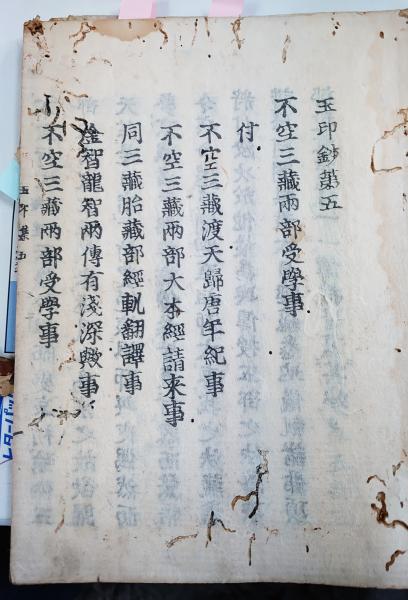 玉印鈔第五
不空三藏兩部受學事
付
不空三藏渡天歸唐年紀事
不空三藏兩部大本經請来事
同三藏胎藏部經軌翻譯事
金智龍智兩傳有淺深歟事
不空三藏兩部受學事
玉印鈔五